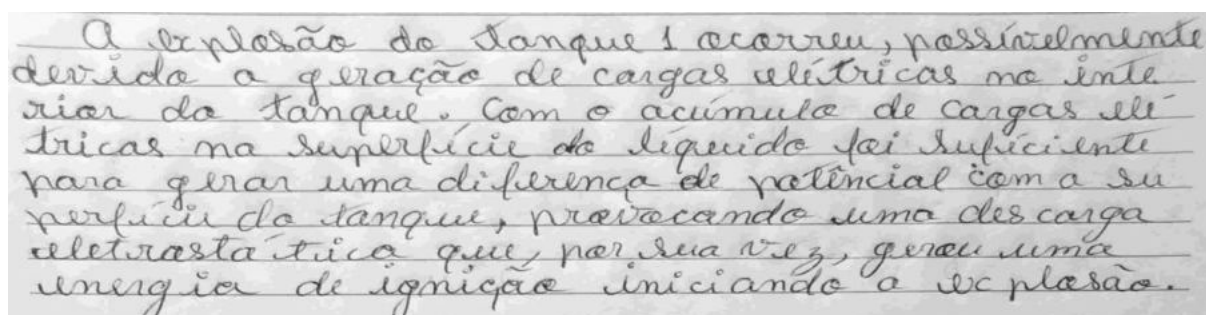 A explosão do tanque 1 ocorreu, possívelmente
devido a geração de cargas elétricas no inte
rior do tanque. Com o acúmulo de cargas elé
tricas na superfície do líquido foi suficiente
para gerar uma diferença de potêncial com a su
perfície do tanque, provocando uma descarga
eletrostática que, por sua vez, gerou uma
energia de ignição iniciando a explosão.